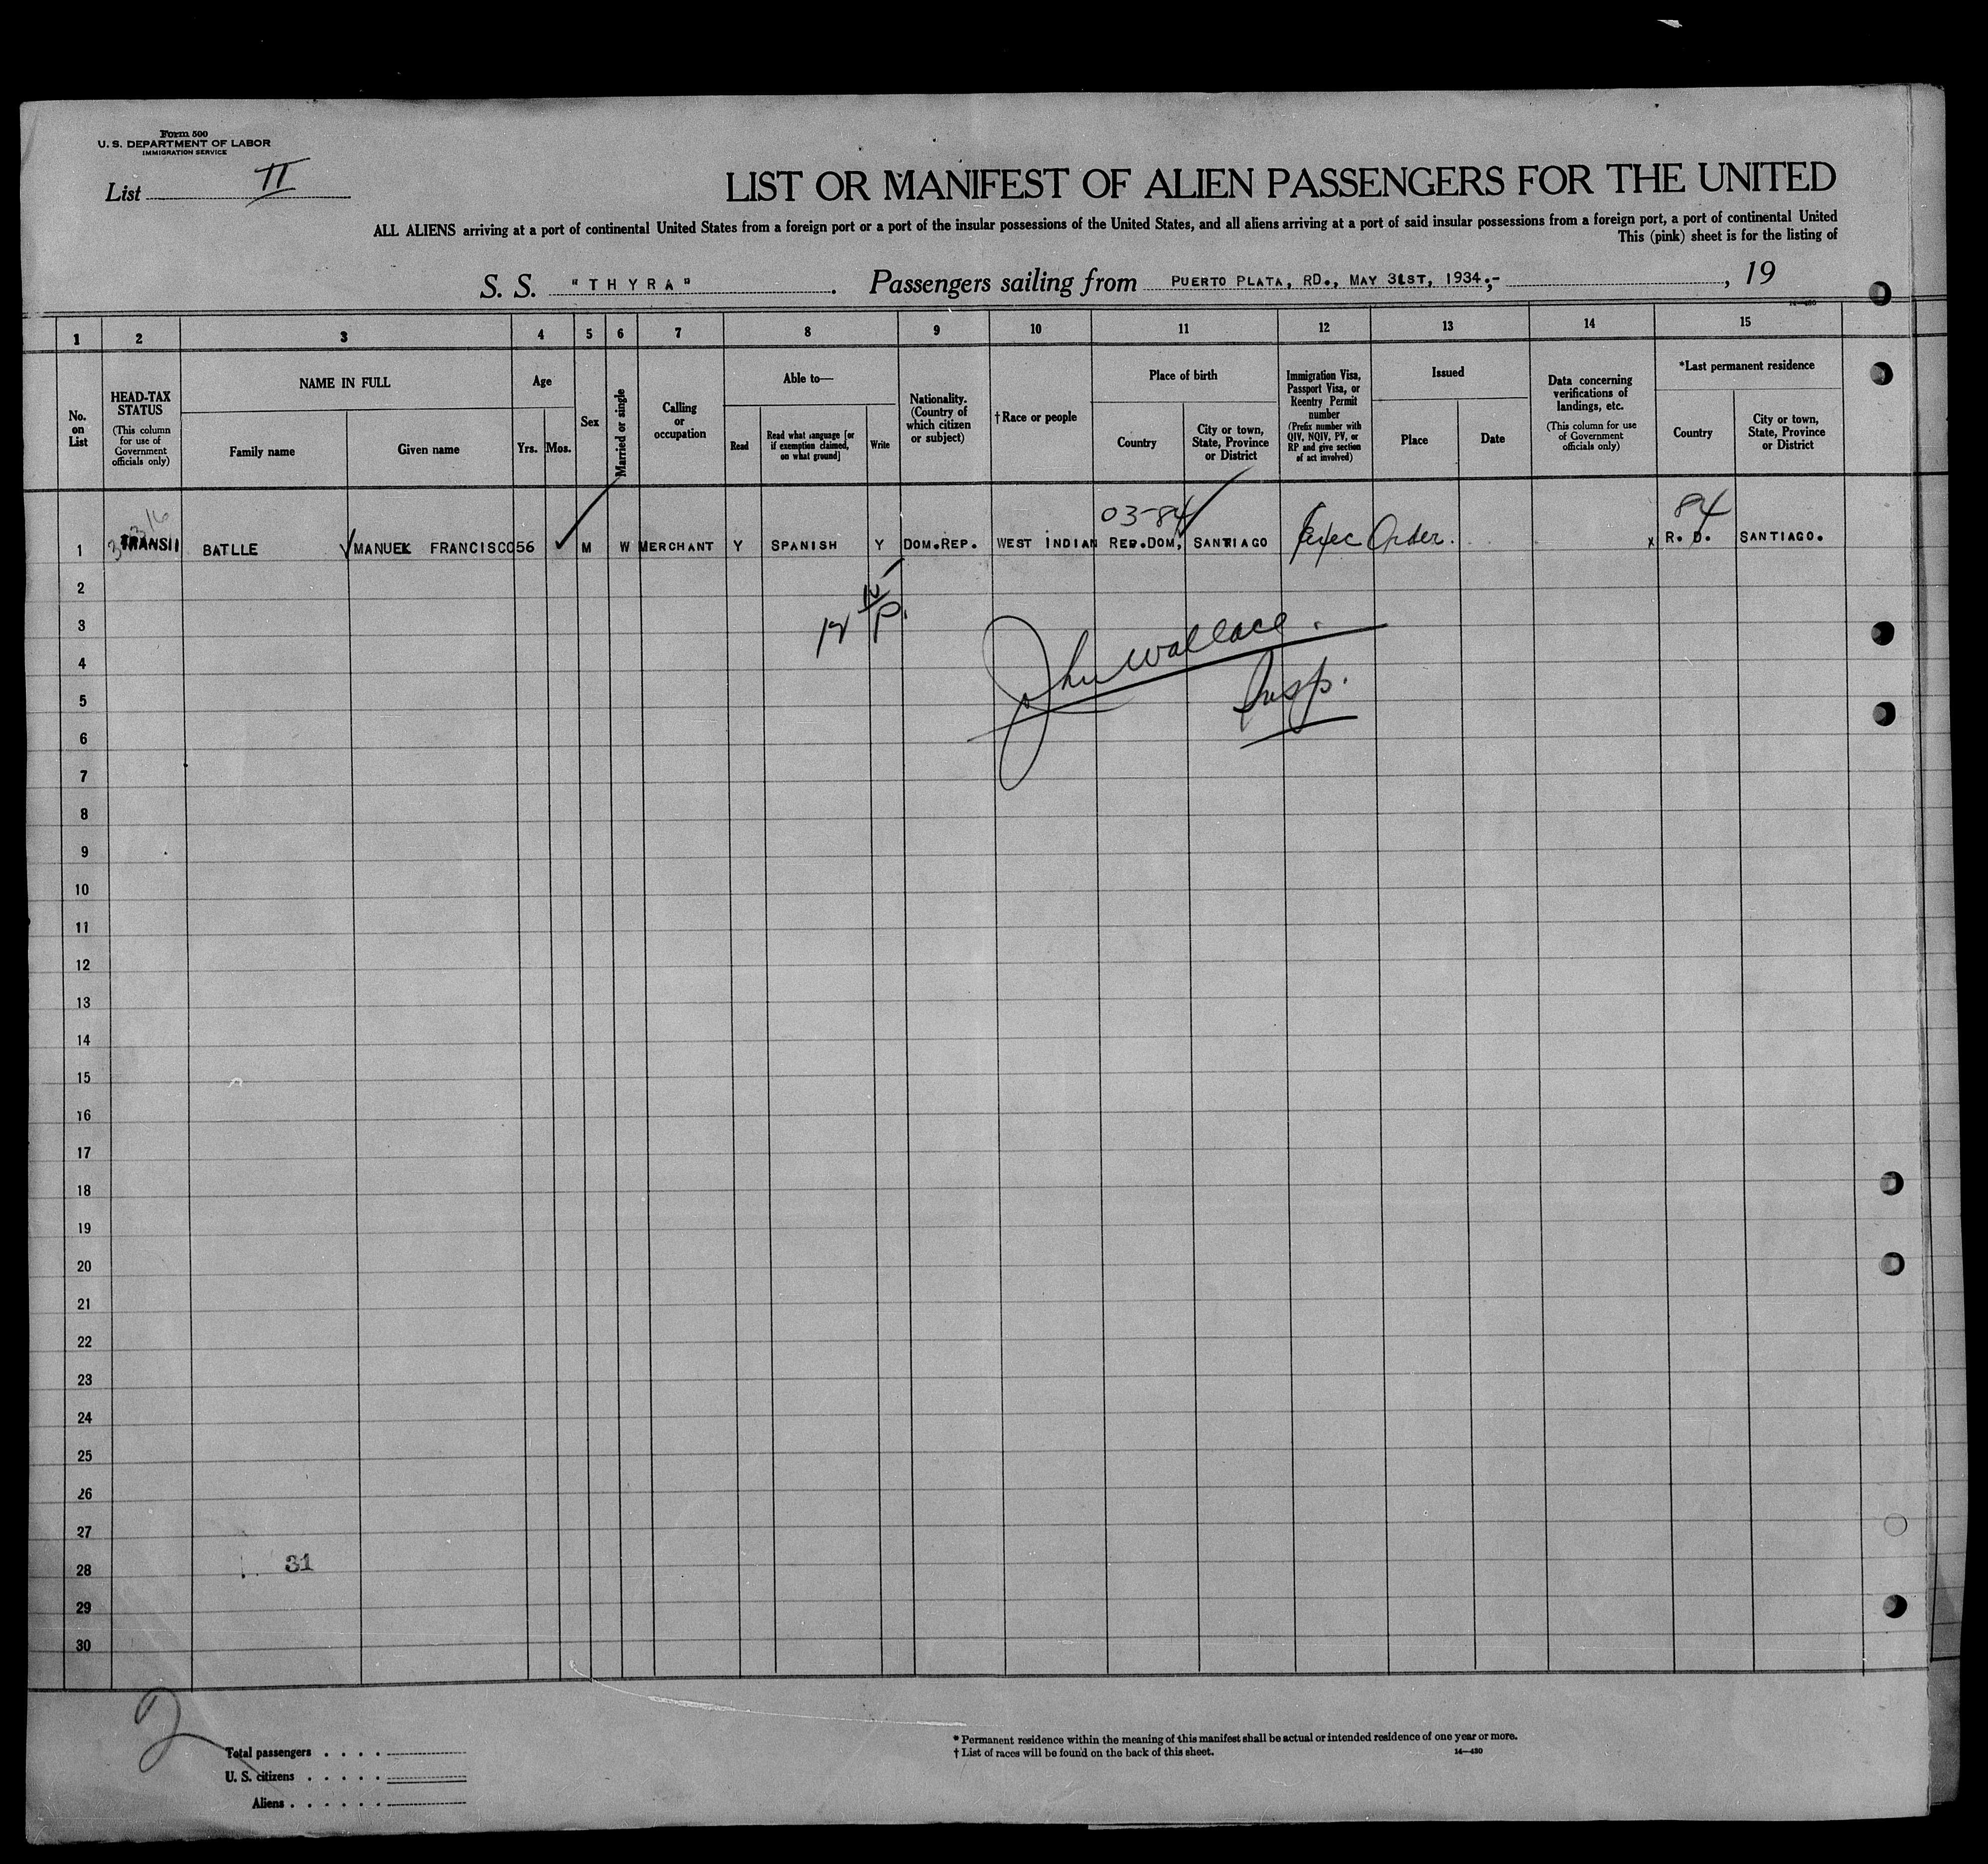 Form 500
U. S. DEPARTMENT OF LABOR
IMMIGRATION SERVICE
List II
LIST OR MANIFEST OF ALIEN PASSENGERS FOR THE UNITED
ALL ALIENS arriving at a port of continental United States from a foreign port or a port of the insular possessions of the United States, and all aliens arriving at a port of said insular possessions from a foreign port, a port of continental United
This (pink) sheet is for the listing of
S. S. "THYRA". Passengers sailing from PUERTO PLATA, RD., MAY 31ST, 1934.;- , 19
14—480
1 2 3 4 5 6 7 8 9 10 11 12 13 14 15
No. on List
HEAD-TAX STATUS
(This column for use of Government officials only)
NAME IN FULL
Family name
Given name
Age
Yrs.
Mos.
Sex
Married or single
Calling or occupation
Able to—
Read
Read what language [or if exemption claimed, on what ground]
Write
Nationality. (Country of which citizen or subject)
†Race or people
Place of birth
Country
City or town, State, Province or District
Immigration Visa, Passport Visa, or Reentry Permit number
(Prefix number with QIV, NQIV, PV, or RP and give section of act involved)
Issued
Place
Date
Data concerning verifications of landings, etc.
(This column for use of Government officials only)
*Last permanent residence
Country
City or town, State, Province or District
03-84
84
1 TRANSIT BATLLE MANUEL FRANCISCO 56 M W MERCHANT Y SPANISH Y DOM.REP. WEST INDIAN REP.DOM, SANTIAGO Exec Order. x R. D. SANTIAGO.
2
3
John Wallace.
4
Insp.
5
6
7
8
9
10
11
12
13
14
15
16
17
18
19
20
21
22
23
24
25
26
27
28 31
29
30
2
Total passengers . . . .
U. S. citizens . . . . .
Aliens . . . . . .
* Permanent residence within the meaning of this manifest shall be actual or intended residence of one year or more.
† List of races will be found on the back of this sheet.
14—480